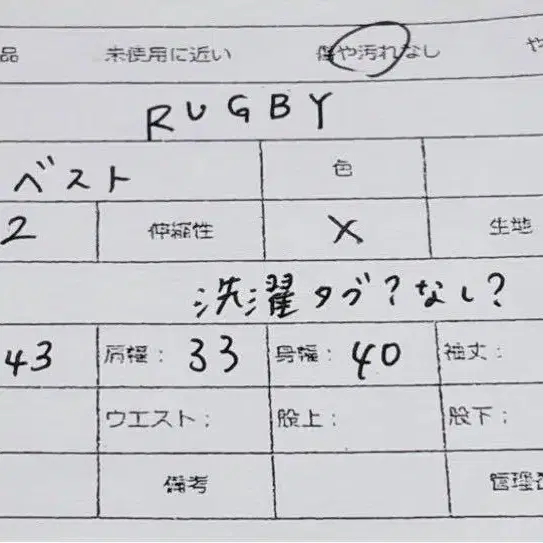 品 未使用に近い 傷や汚れなし や
RUGBY
ベスト 色
2 伸縮性 X 生地
洗濯タブ?なし?
43 肩幅: 33 身幅: 40 袖丈:
ウエスト: 股上: 股下:
備考 管理